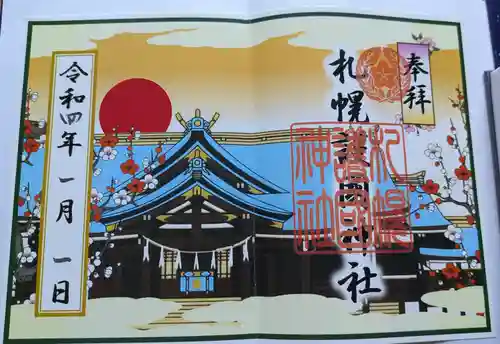 奉拝
札幌護国神社
札幌
護国
神社
令和四年一月一日